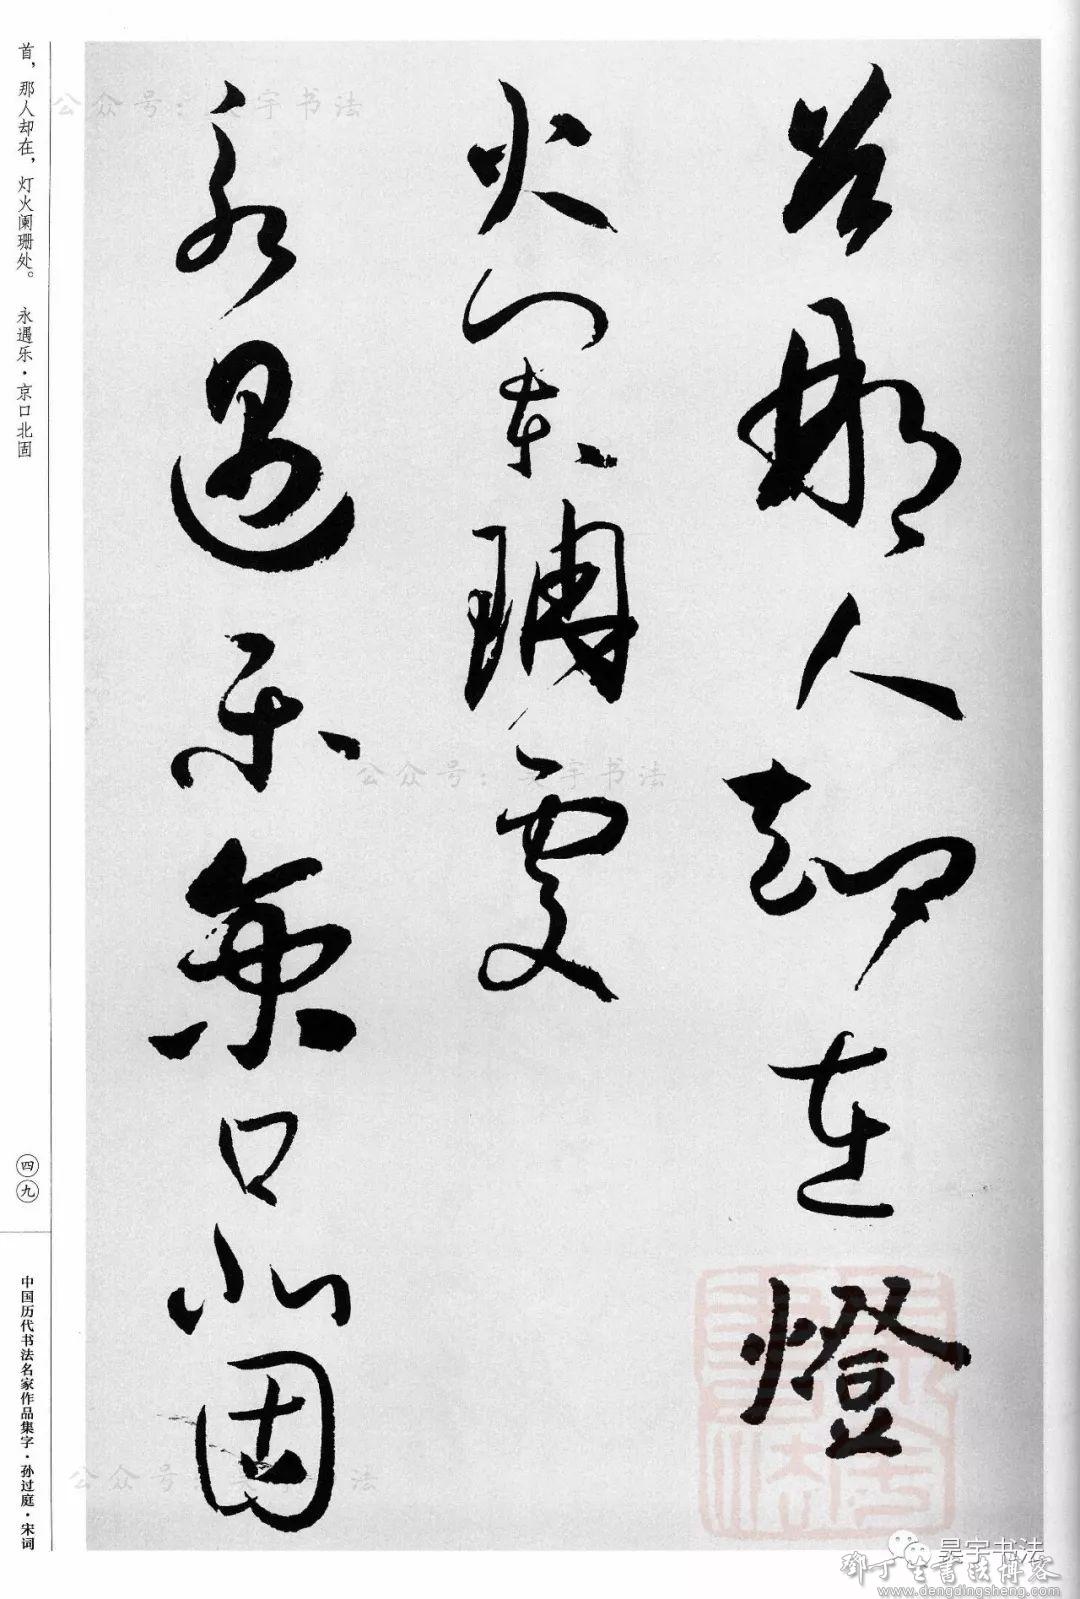 首那人却在燈
火闌珊處
永遇樂京口北固
首，那人却在，灯火阑珊处。 永遇乐·京口北固
四九
中国历代书法名家作品集字·孙过庭·宋词
公众号：昊宇书法
公众号：昊宇书法
公众号：昊宇书法
昊宇书法
鄧丁生書法博客
www.dengdingsheng.com